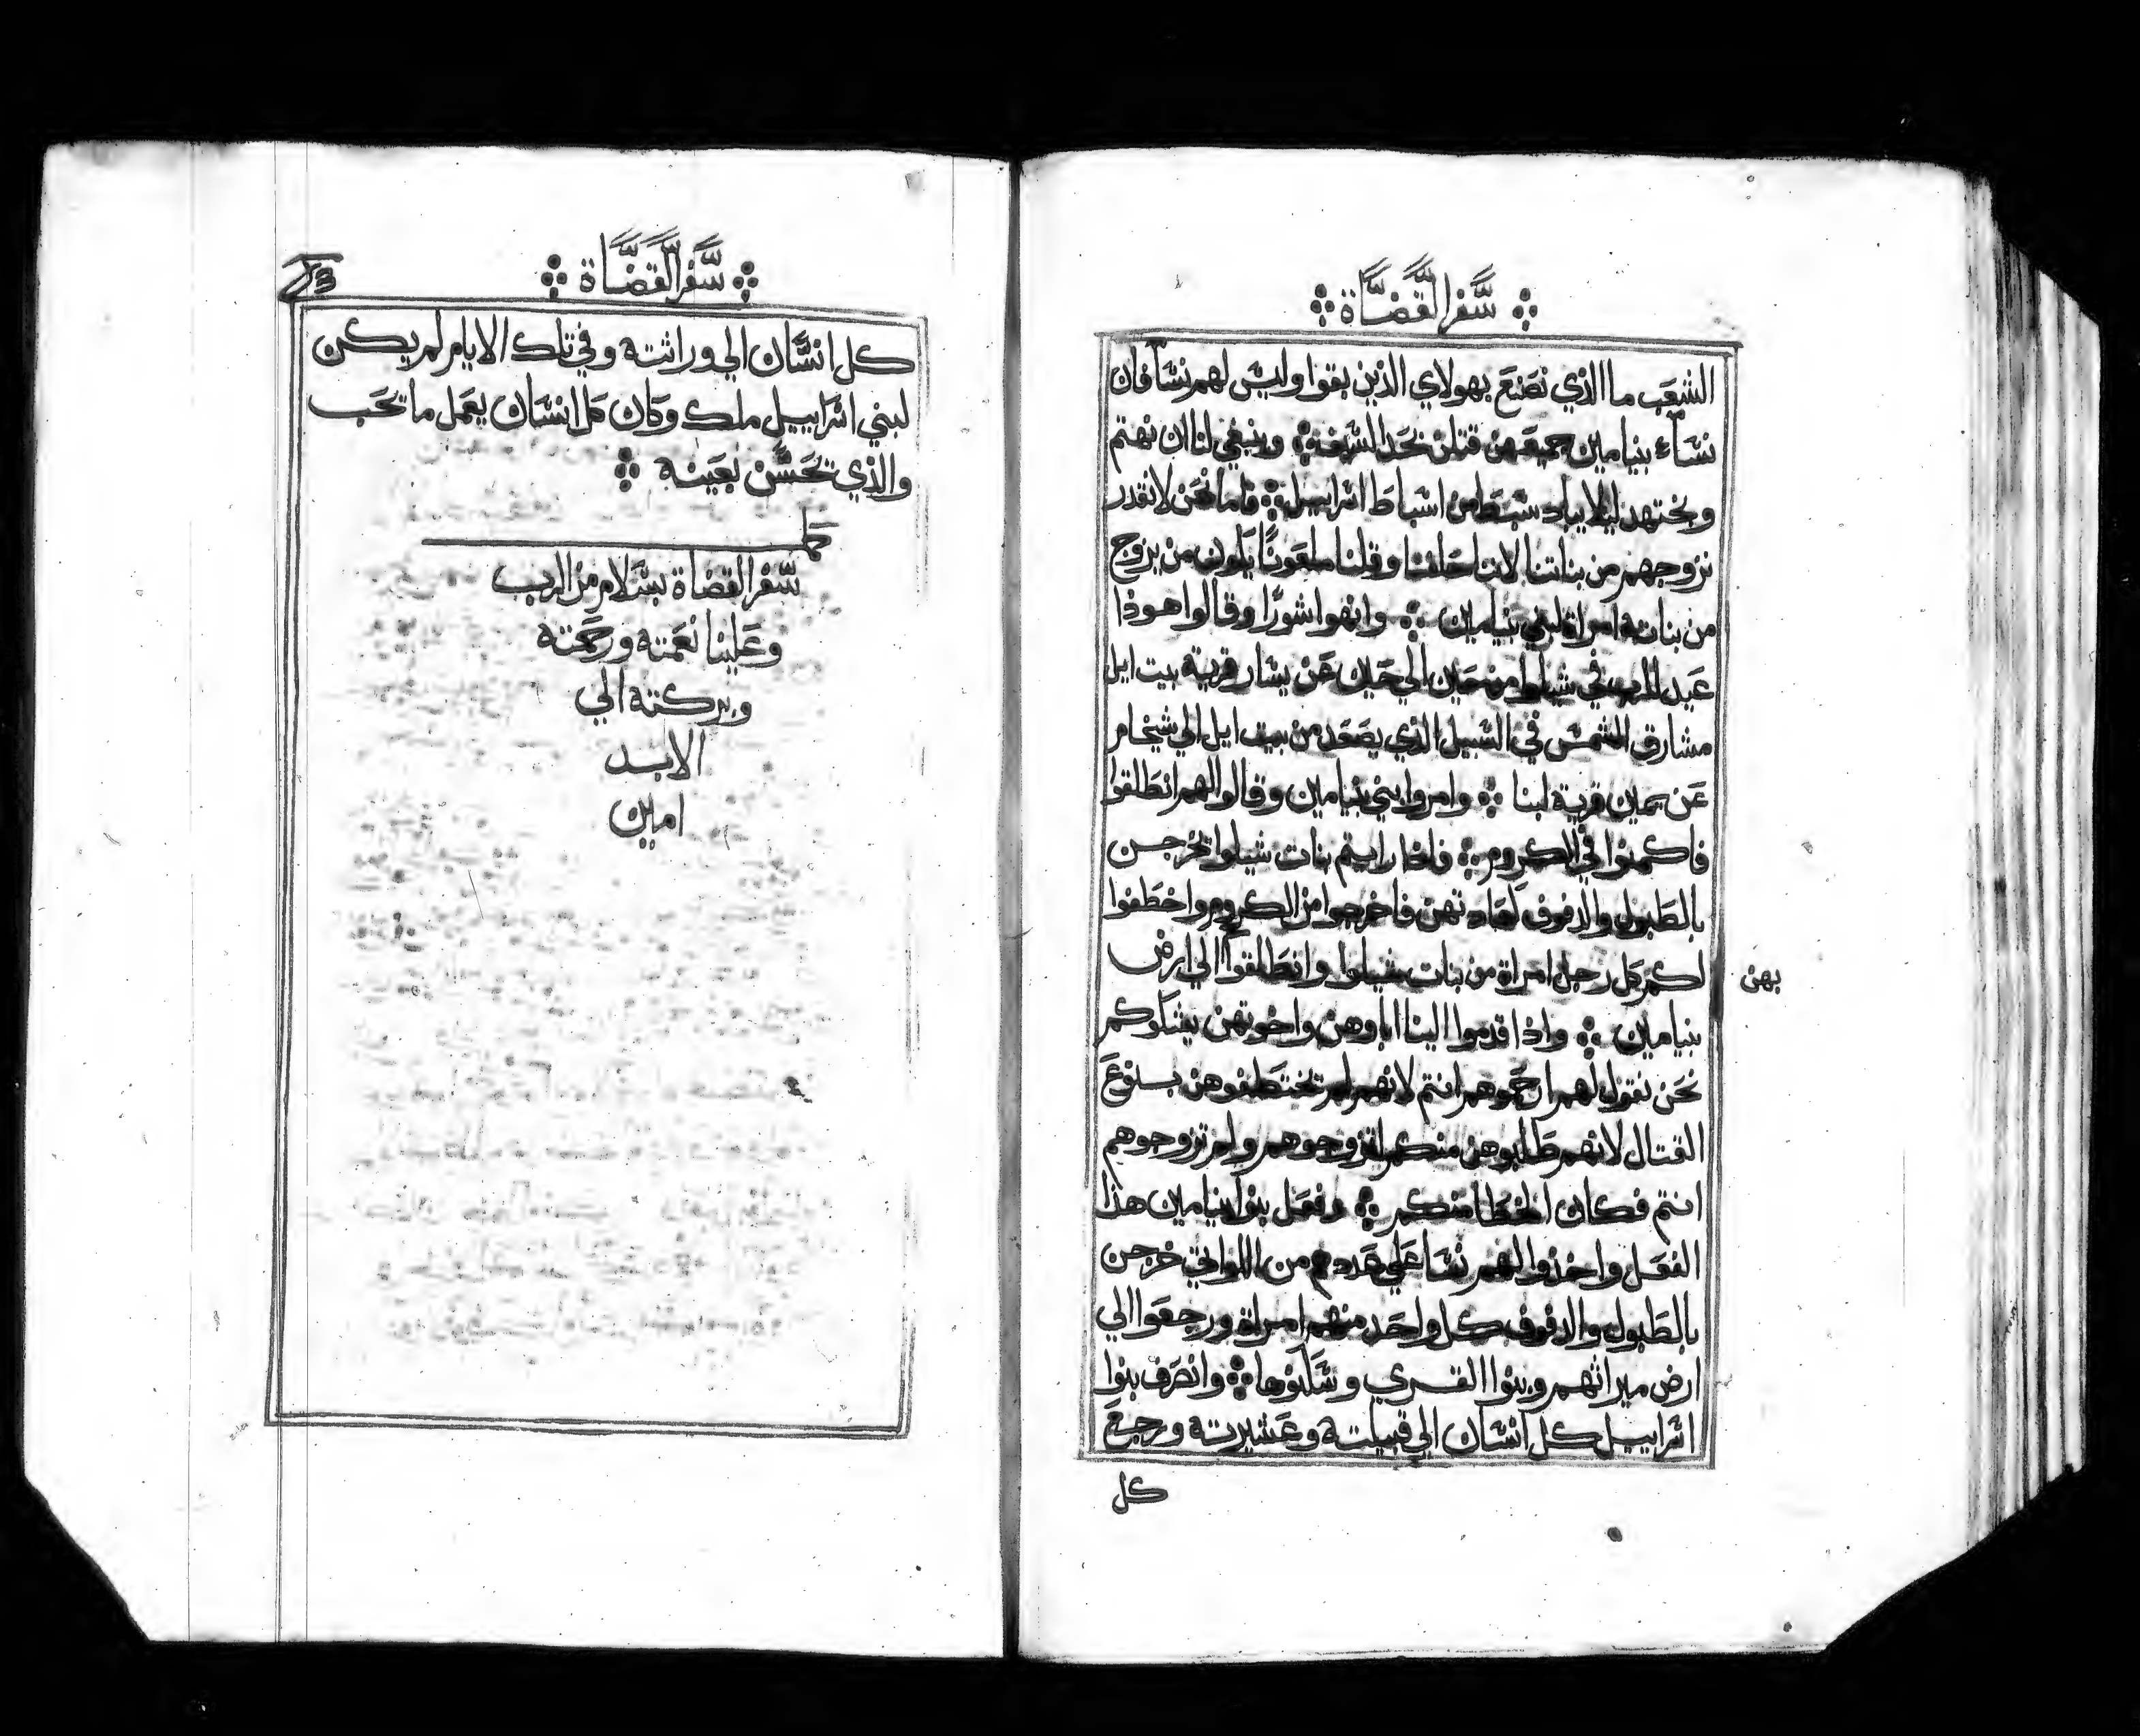 سفر القضاة
الشعب ما الذي نصنع بهولاي الذين بقوا وليس لهم نسا فان
نساء بنيامين جميعهن قتلن بحد السيف وينبغي لنا ان نهتم
ونجتهد ليلا يباد سبط من اسباط اسراييل فاما نحن لا نقدر
نزوجهم من بناتنا لاننا حلفنا وقلنا ملعونًا يكون من يزوج
من بناته امراة لبني بنيامين وانهوا شورًا وقالوا هوذا
عيد الرب في شيلوا من حين الي حين عن يسار قرية بيت ايل
مشارق الشمس في السبيل الذي يصعد من بيت ايل الي شيخام
عن يمين قرية لبنا وامروا بني بنيامين وقالوا لهم انطلقوا
فاكمنوا في الكروم فاذا رايتم بنات شيلوا يخرجن
بالطبول والدفوف لعادتهن فاخرجوا من الكروم واخطفوا
لكم كل رجل امراة من بنات شيلوا وانطلقوا الي ارض
بهن
بنيامين واذا قدموا الينا اباوهن واخوتهن يشكوكم
نحن نقول لهم ارحموهم انتم لانهم لم يختطفوهن بنوع
القتال لانهم طلبوهن منكم لتزوجوهم ولم تزوجوهم
انتم فكان الخطا منكم وفعل بنوا بنيامين هذا
الفعل واخذوا لهم نسا علي عددهم من اللواتي خرجن
بالطبول والدفوف كل واحد منهم امراة ورجعوا الي
ارض ميراثهم وبنوا القري وسكنوها وانصرف بنوا
اسراييل كل انسان الي قبيلته وعشيرته ورجع
كل
سفر القضاة
كل انسان الي وراثته وفي تلك الايام لم يكن
لبني اسراييل ملك وكان كل انسان يعمل ما يحب
والذي يحسن بعينه
كمل
سفر القضاة بسلام من الرب
وعلينا نعمته ورحمته
وبركته الي
الابد
امين